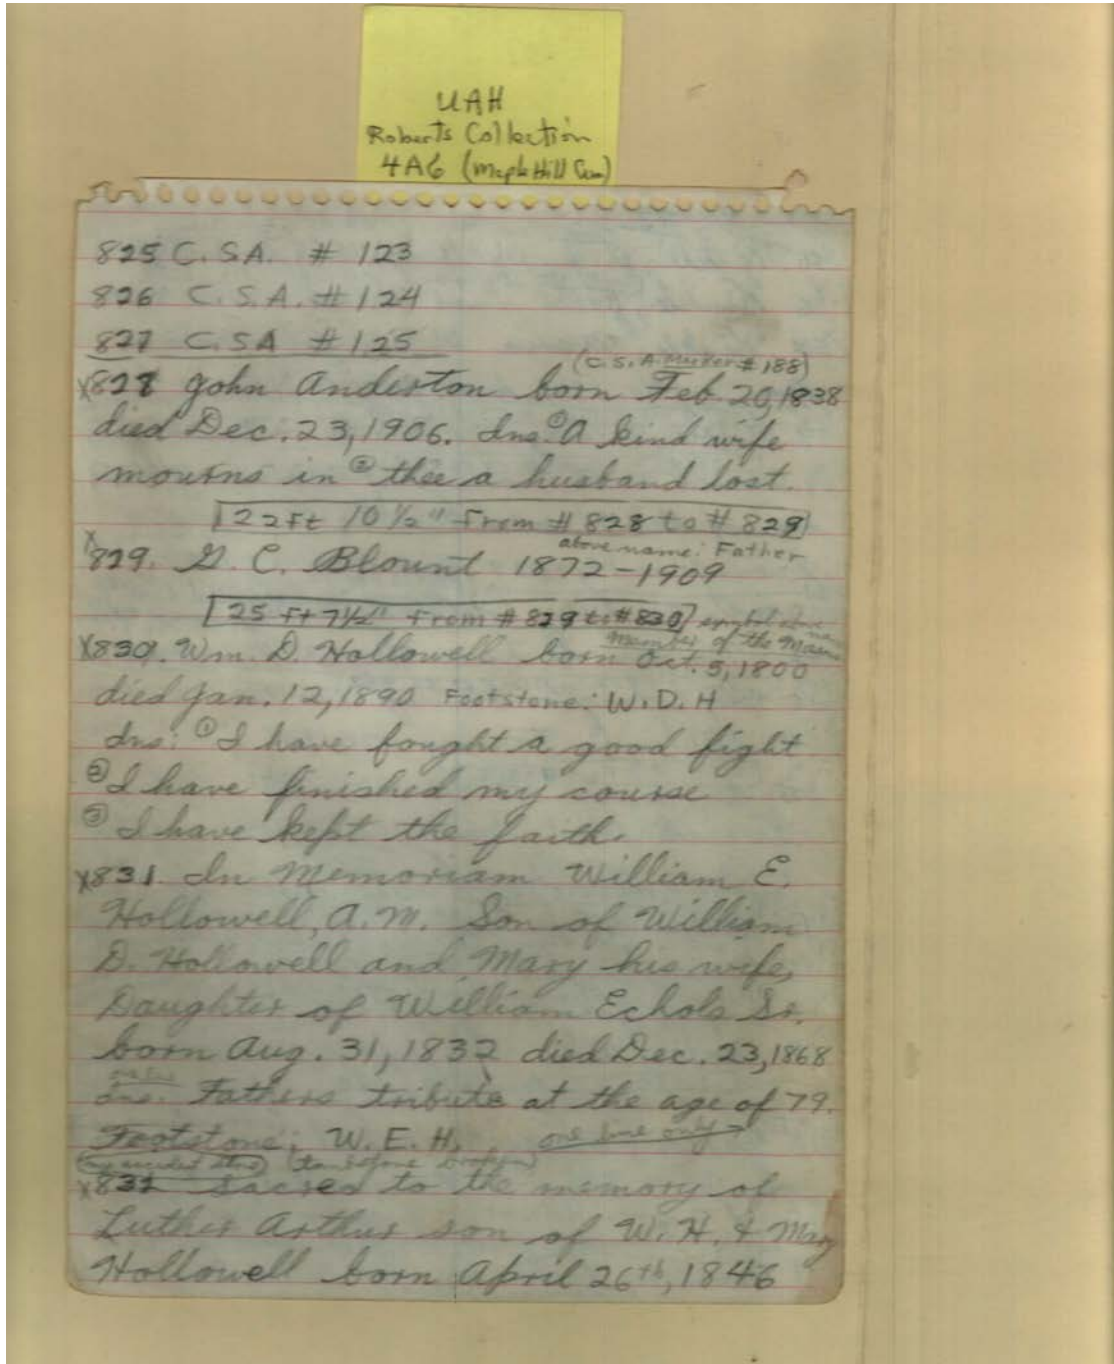 UAH
Roberts Collection
4A6 (Maple Hill Cem)
825 C.S.A. # 123
826 C.S.A. # 124
827 CSA # 125
(C.S.A. Marker # 188)
X828 John Anderton born Feb. 20, 1838
died Dec. 23, 1906. Ins: ① A kind wife
mourns in ② thee a husband lost.
22 Ft 10 1/2" From # 828 to # 829
above name: Father
X829. G. C. Blount 1872-1909
25 Ft 7 1/2" From # 829 to # 830 symbol above
Member of the Masons
X830. Wm. D. Hollowell born Oct. 5, 1800
died Jan. 12, 1890 Footstone: W.D.H
Ins: ① I have fought a good fight
② I have finished my course
③ I have kept the faith.
X831. In Memoriam William E.
Hollowell, A.M. Son of William
D. Hollowell and Mary his wife,
Daughter of William Echols Sr.
born Aug. 31, 1832 died Dec. 23, 1868
Ins: Fathers tribute at the age of 79.
Footstone: W.E.H. one line only →
X832 Sacred to the memory of
Luther Arthur son of W. H. & Mary
Hollowell born April 26th, 1846